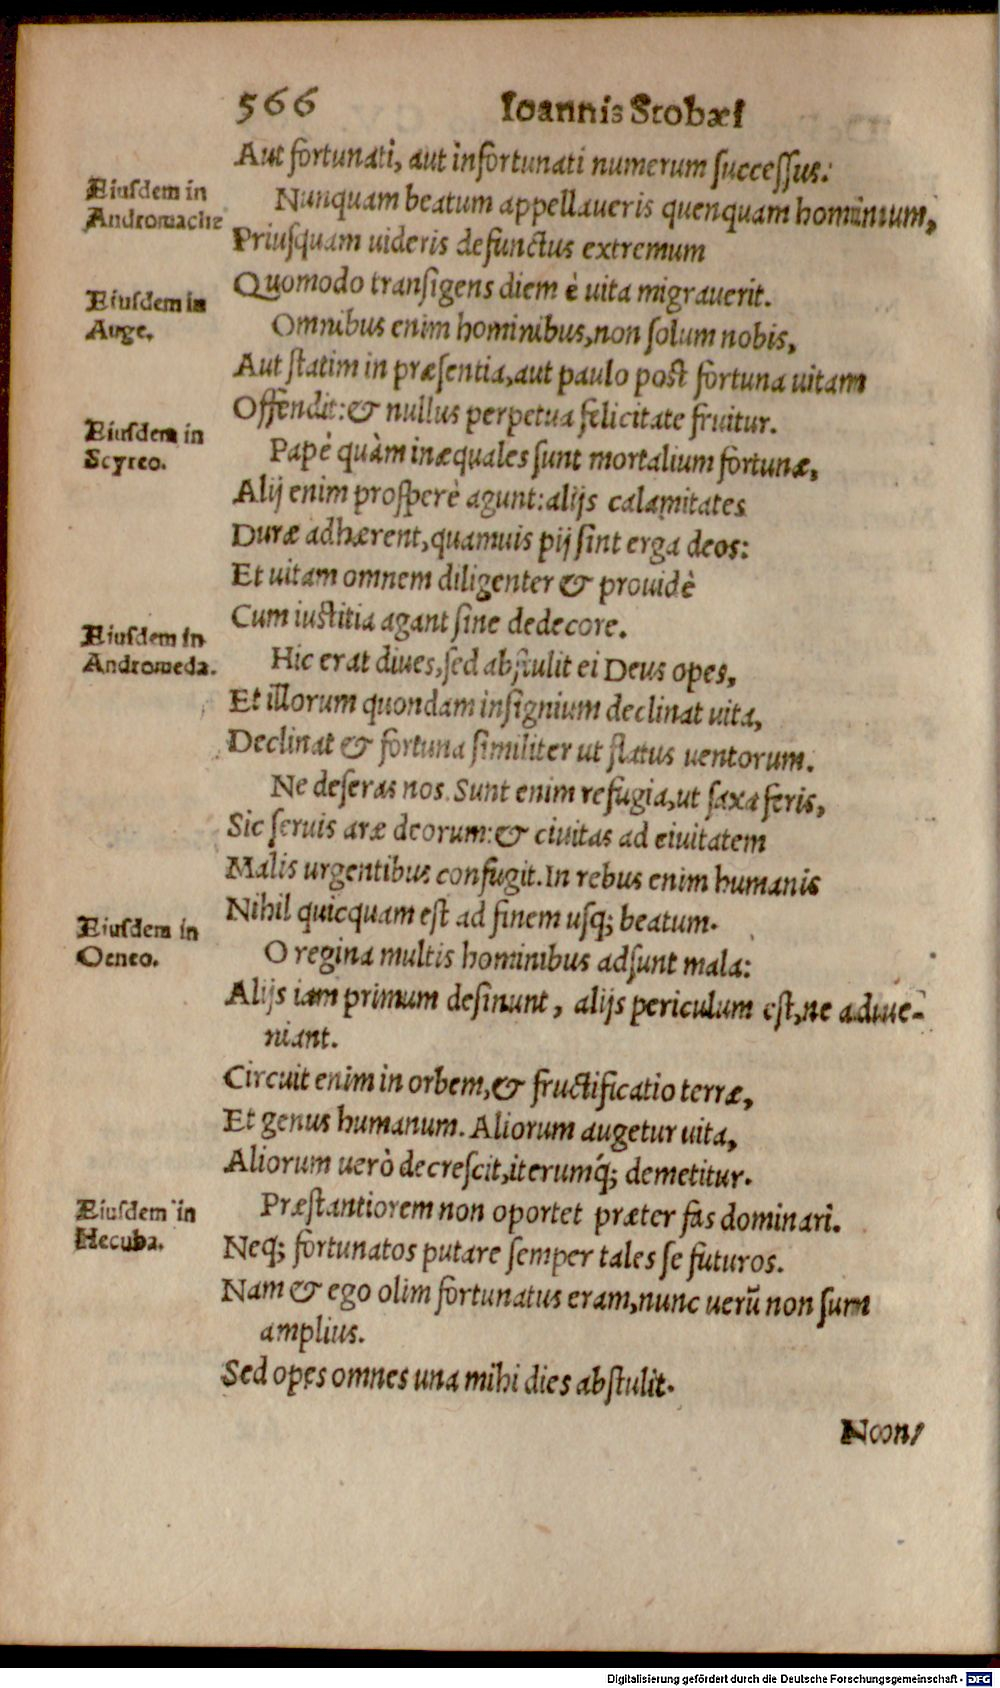 566 Ioannis Stobæi
Aut fortunati, aut infortunati numerum successus:
Eiusdem in
Andromache
Nunquam beatum appellaueris quenquam hominum,
Priusquam uideris defunctus extremum
Quomodo transigens diem è uita migrauerit.
Eiusdem in
Auge.
Omnibus enim hominibus, non solum nobis,
Aut statim in præsentia, aut paulo post fortuna uitam
Offendit: & nullus perpetua felicitate fruitur.
Eiusdem in
Scyreo.
Papè quàm inæquales sunt mortalium fortunæ,
Alij enim prosperè agunt: alijs calamitates
Duræ adhærent, quamuis pij sint erga deos:
Et uitam omnem diligenter & prouidè
Cum iustitia agant sine dedecore.
Eiusdem in
Andromeda.
Hic erat diues, sed abstulit ei Deus opes,
Et illorum quondam insignium declinat uita,
Declinat & fortuna similiter ut flatus uentorum.
Ne deseras nos. Sunt enim refugia, ut saxa feris,
Sic seruis aræ deorum: & ciuitas ad eiuitatem
Malis urgentibus confugit. In rebus enim humanis
Nihil quicquam est ad finem usq; beatum.
Eiusdem in
Oeneo.
O regina multis hominibus adsunt mala:
Alijs iam primum desinunt, alijs periculum est, ne adue-
niant.
Circuit enim in orbem, & fructificatio terræ,
Et genus humanum. Aliorum augetur uita,
Aliorum uerò decrescit, iterumq́; demetitur.
Eiusdem in
Hecuba.
Præstantiorem non oportet præter fas dominari.
Neq; fortunatos putare semper tales se futuros.
Nam & ego olim fortunatus eram, nunc uerũ non sum
amplius.
Sed opes omnes una mihi dies abstulit.
Digitalisierung gefördert durch die Deutsche Forschungsgemeinschaft - DFG